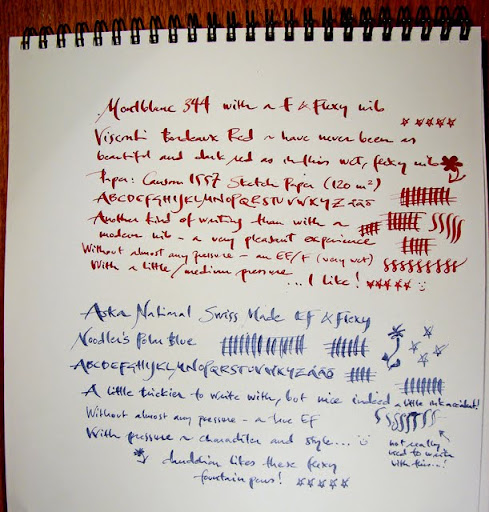 Montblanc 344 with a F & Flexy nib
Visconti Bordeaux Red ~ have never been as
beautiful and dark red as in this wet, flexy nib
Paper: Canson 1557 Sketch Paper (120 m²)
ABCDEFGHIJKLMNOPQRSTUVWXYZ åäö
Another kind of writing than with a
modern nib - a very pleasant experience
Without almost any pressure - an EF/F (very wet)
With a little/medium pressure
...I like!
National Swiss Made EF & Flexy
Noodler's Polar Blue
ABCDEFGHIJKLMNOPQRSTUVWXYZ åäö
A little trickier to write with, but nice indeed
a little ink accident!
Without almost any pressure - a true EF
With pressure ~ character and style...
not really
used to write
with this...!
likes these flexy
fountain pens!